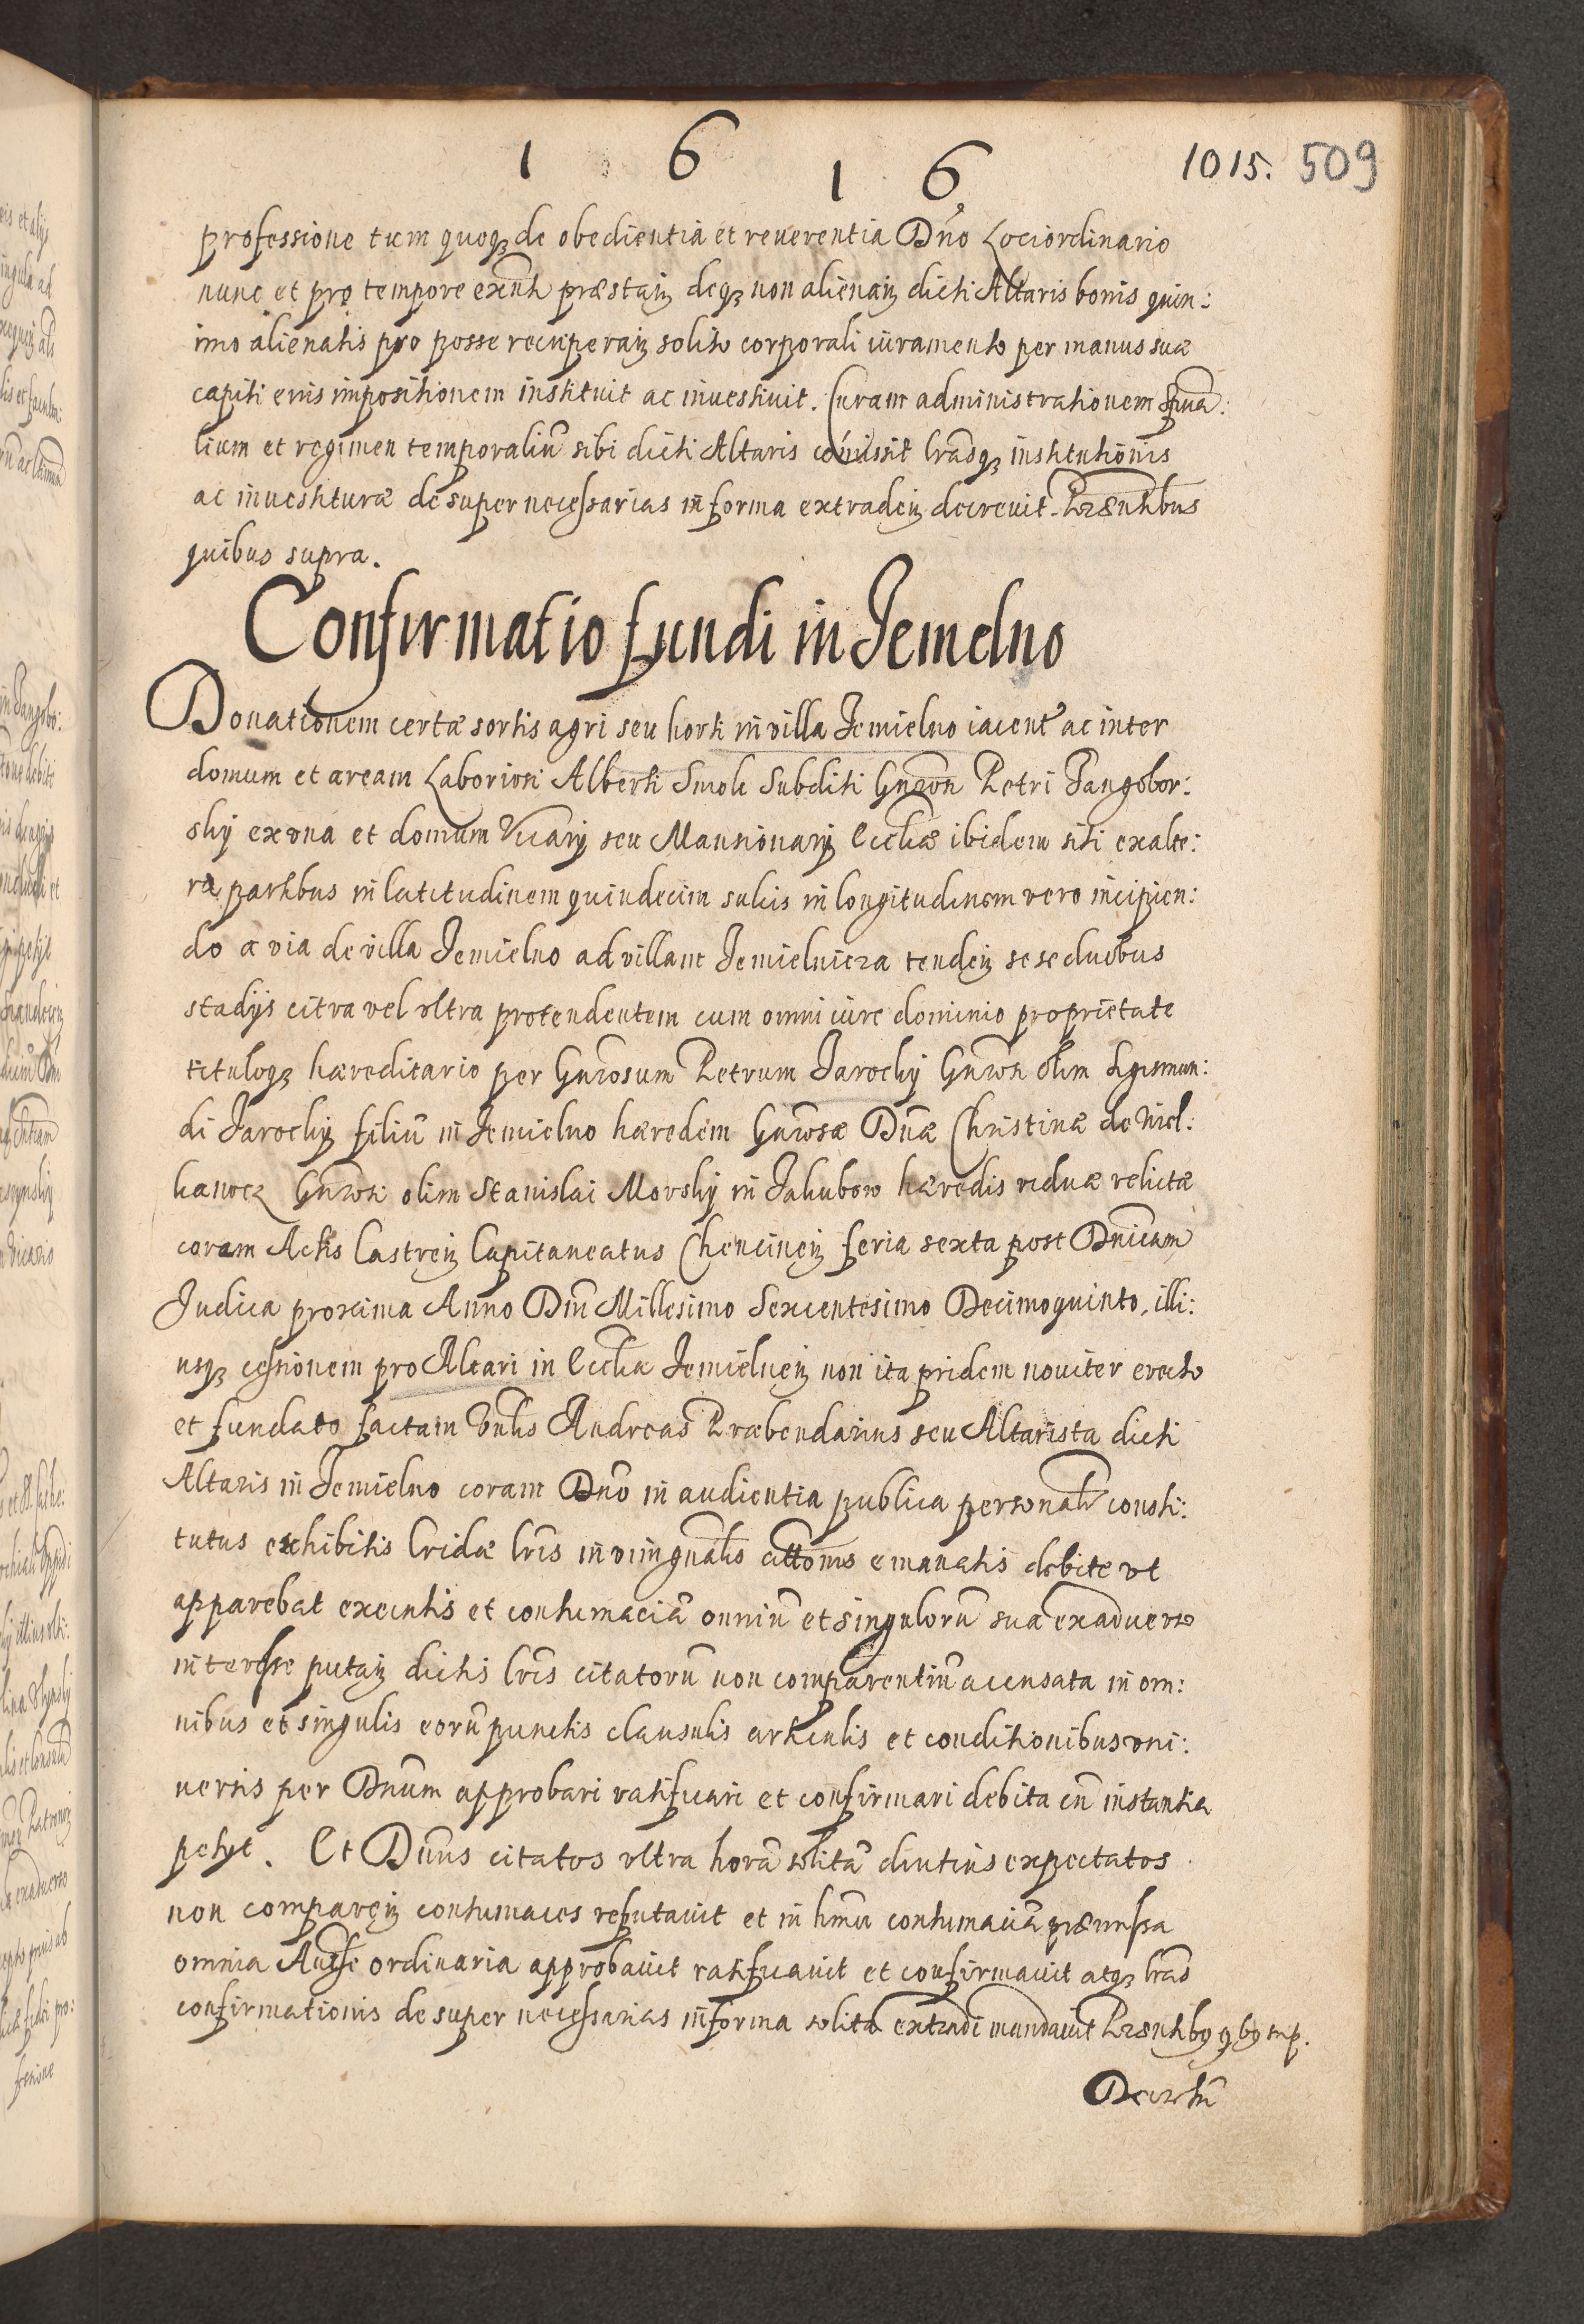 1 6 1 6
1015. 509
professione tum quoqꝫ de obedientia et reuerentia Dńo Lociordinario
nunc et pro tempore exñti præstañ deqꝫ non alienañ dicti Altaris bonis quin:
imo alienatis pro posse recuperañ solito corporali iuramento per manus suæ
capiti eius impositionem instituit ac inuestiuit. Curam administrationem spuã:
lium et regimen temporaliũ sibi dicti Altaris com̃isit lrãsqꝫ institutionis
ac inuestituræ de super necessarias in forma extradeñ decreuit. Præsentibus
quibus supra.
Confirmatio fundi in Jemelno
Donationem certæ sortis agri seu horti in villa Jemielno iacent ac inter
domum et aream Laboriosi Alberti Smole Subditi Gñrosi Petri Gangobor:
sky ex vna et domum Vicarij seu Mansionarij Eccliæ ibidem siti ex alte:
ra partibus in latitudinem quindecim sulcis in longitudinem vero incipien:
do a via de villa Jemielno ad villam Jemielnicza tendeñ sese duobus
stadijs citra vel vltra protendentem cum omni iure dominio proprietate
tituloqꝫ hæreditario per Gñrosum Petrum Jarocky Gñrosi olim Sigismun:
di Jarocky filiũ in Jemielno hæredem Gñrosæ Dñæ Christinæ de Niel:
kanocz Gñrosi olim Stanislai Morsky in Jakubow hæredis viduæ relictæ
coram Actis Castreñ Capitaneatus Chencineñ feria sexta post Dñicam
Judica proxima Anno Dñi Millesimo Sexcentesimo Decimoquinto, illi:
usqꝫ cessionem pro Altari in Ecclia Jemielneñ non ita pridem nouiter erecto
et fundato factam Vñlis Andreas Præbendarius seu Altarista dicti
Altaris in Jemielno coram Dño in audientia publica personalr consti:
tutus exhibitis Cridæ lrĩs in vim gñalis cittonis emanatis debite vt
apparebat executis et contumaciã omniũ et singulorũ sua exaduerso
interesse putañ dictis lrĩs citatorũ non comparentiũ accusata in om:
nibus et singulis eorũ punctis clausulis articulis et conditionibus vni:
uersis per Dñum approbari ratificari et confirmari debita cũ instantia
petijt. Et Dñus citatos vltra horã solitã diutius expectatos
non compareñ contumaces reputauit et in hmõi contumaciã præmissa
omnia Auctte ordinaria approbauit ratificauit et confirmauit atqꝫ lrãs
confirmationis de super necessarias in forma solita extradi mandauit Præsentibꝫ qbꝫ sup.
Decretũ